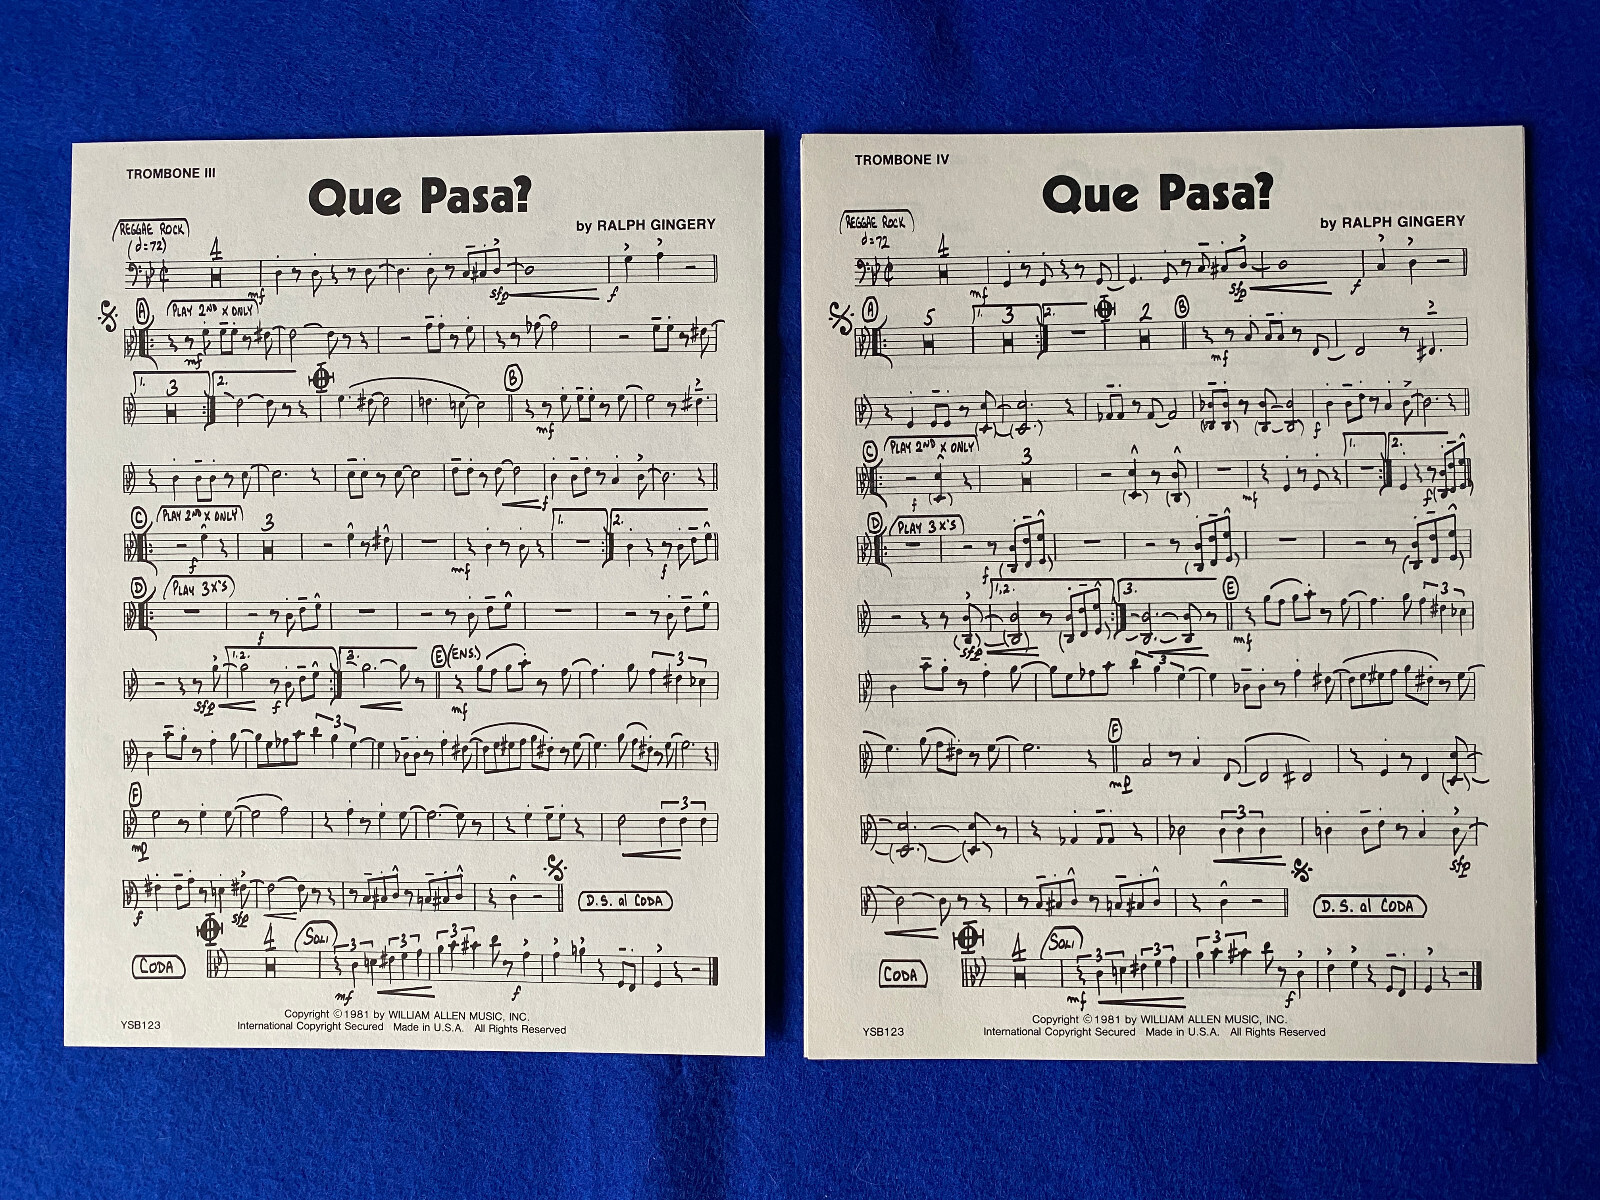 TROMBONE III
Que Pasa?
by RALPH GINGERY
REGGAE ROCK
(𝅗𝅥=72)
4
mf
sfp
f
A
PLAY 2ND X ONLY
mf
1.
3
2.
B
mf
f
C
PLAY 2ND X ONLY
3
1.
2.
f
mf
f
D
PLAY 3X'S
f
1.2.
3.
E (ENS.)
3
sfp
f
mf
3
F
3
mp
f
sfp
D.S. al CODA
CODA
4
SOLI
3
3
3
mf
f
Copyright © 1981 by WILLIAM ALLEN MUSIC, INC.
YSB123
International Copyright Secured Made in U.S.A. All Rights Reserved
TROMBONE IV
Que Pasa?
by RALPH GINGERY
REGGAE ROCK
𝅗𝅥=72
4
mf
sfp
f
A
5
1.
3
2.
2
B
mf
f
C
PLAY 2ND X ONLY
3
1.
2.
f
mf
f
D
PLAY 3X'S
f
1,2.
3.
E
3
sfp
mf
3
F
mp
3
sfp
D.S. al CODA
CODA
4
SOLI
3
3
3
mf
f
Copyright © 1981 by WILLIAM ALLEN MUSIC, INC.
YSB123
International Copyright Secured Made in U.S.A. All Rights Reserved